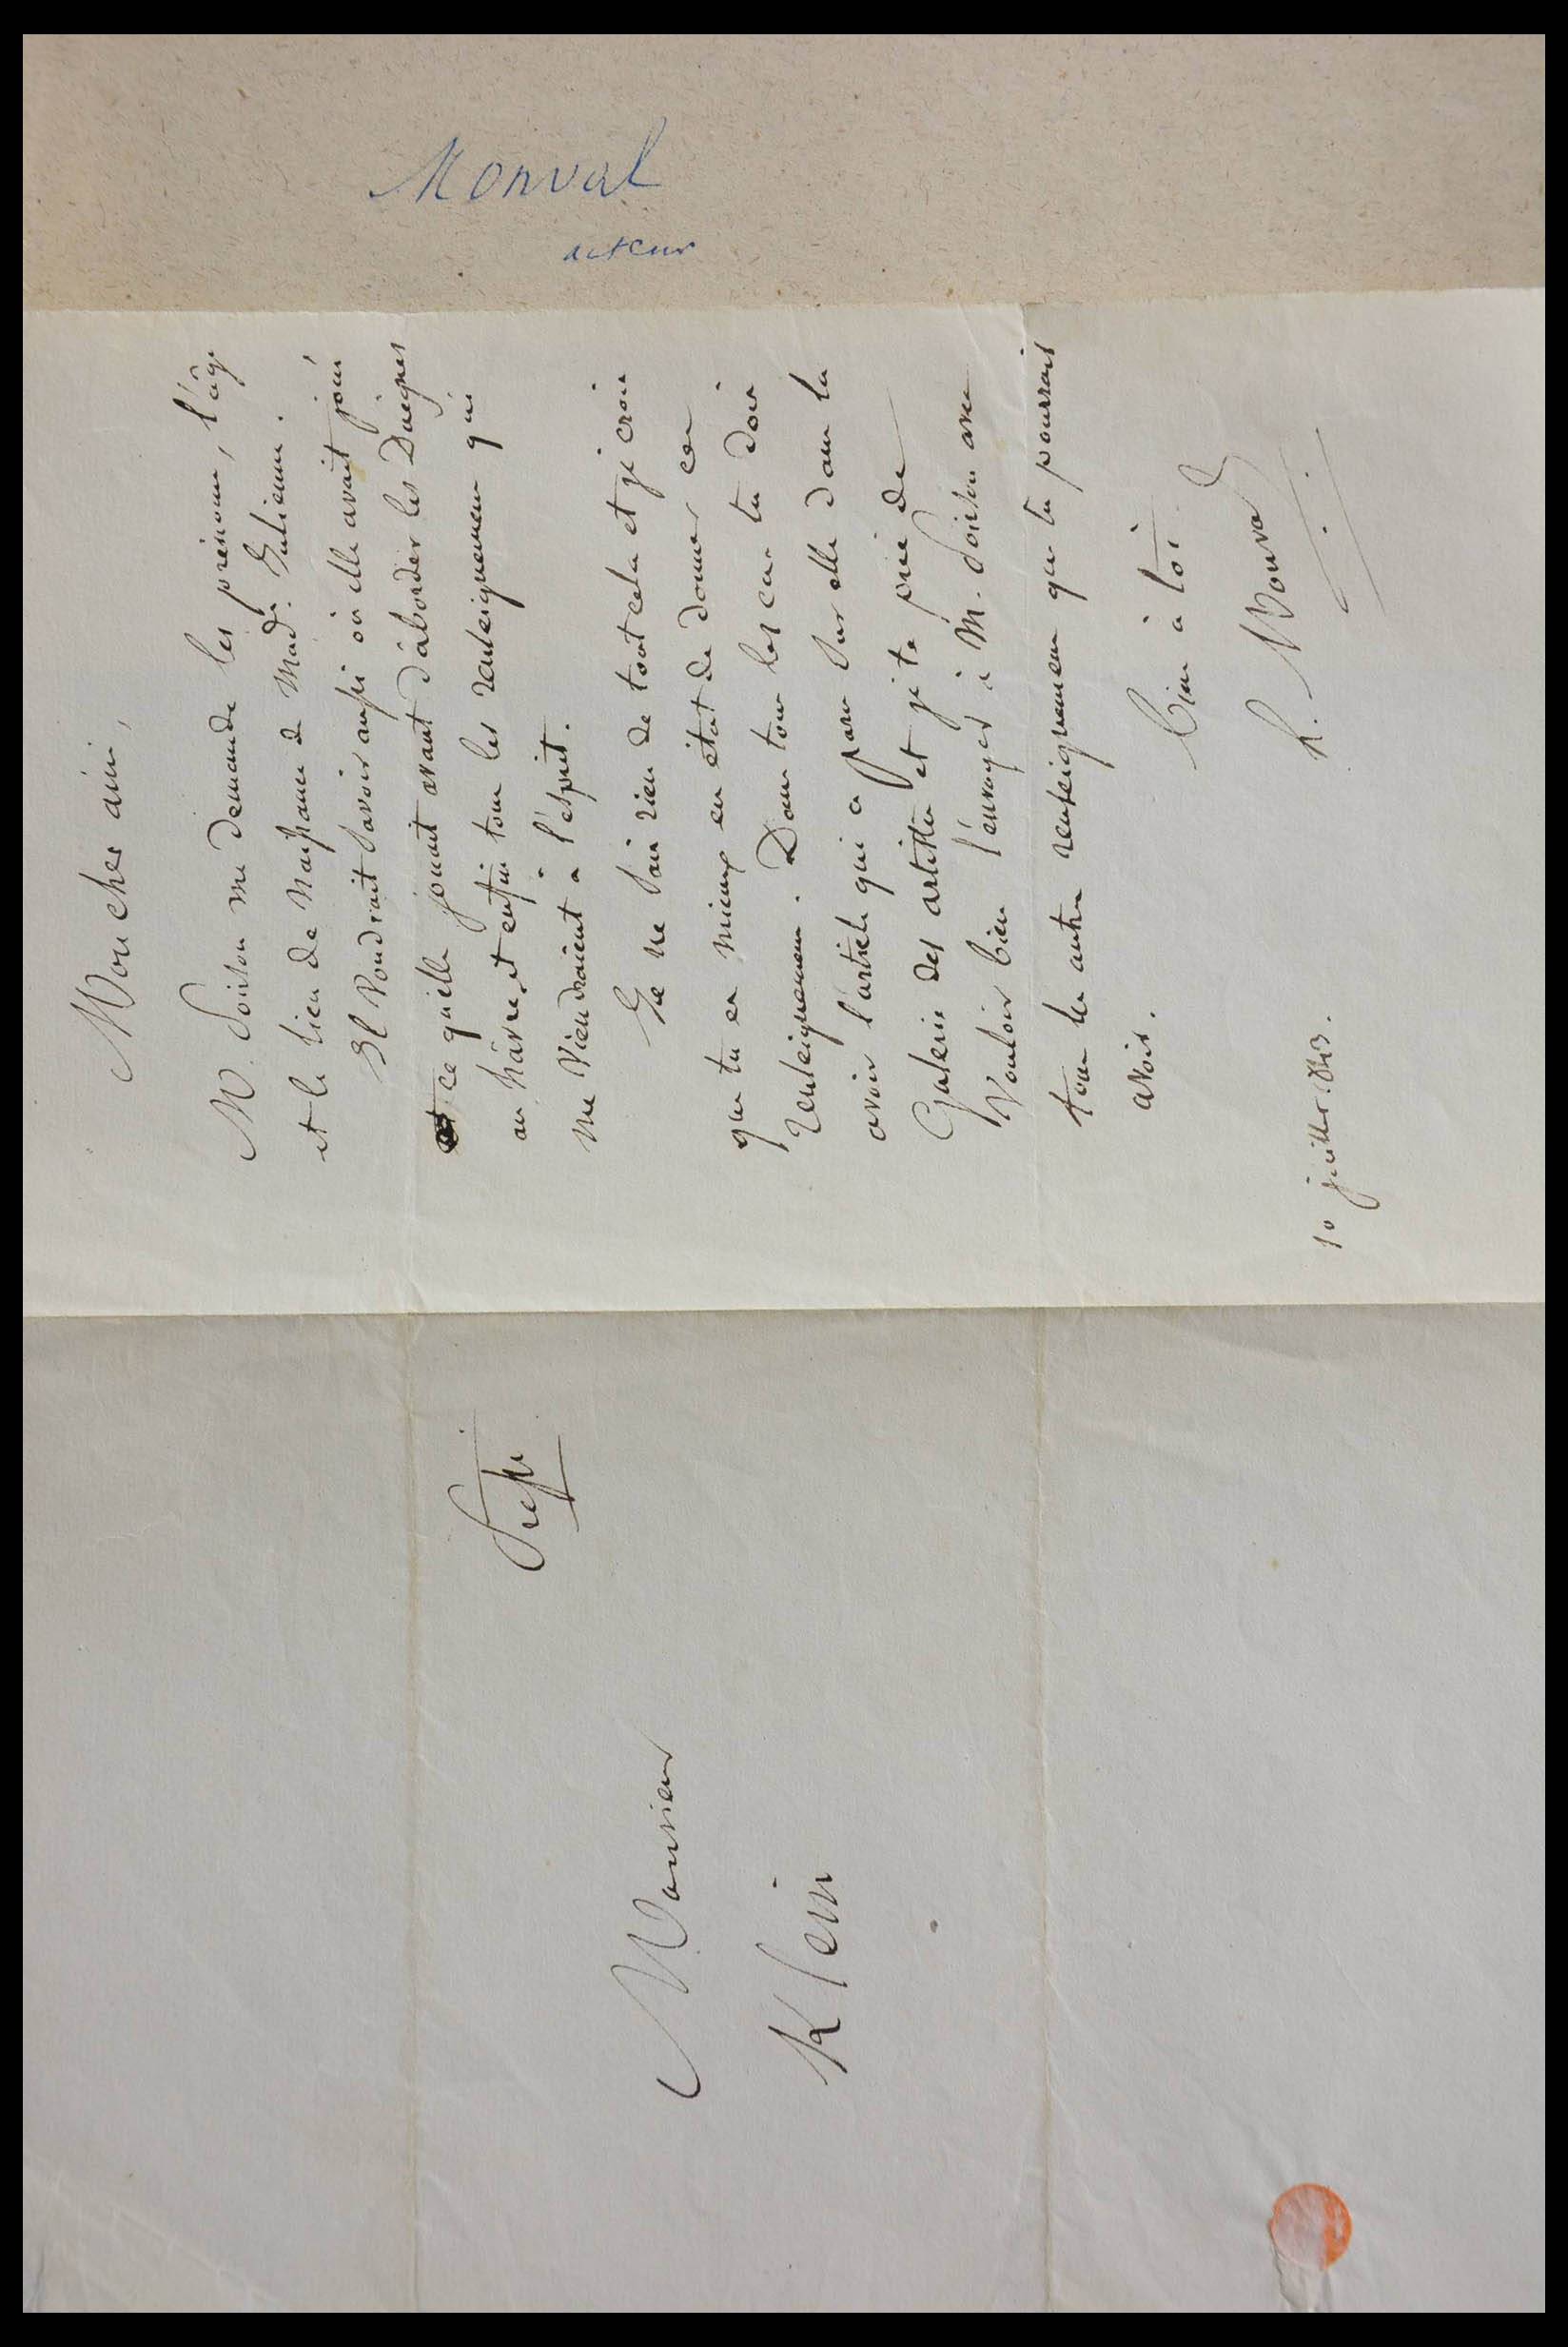 Monval
acteur
Mon cher ami,
M. Poirson me demande les prénoms, l'âge
et le lieu de naissance de Mad. Julienne.
Il voudrait savoir aussi où elle avait joué
ce qu'elle jouait avant d'aborder les Duègnes
au hâvre, et enfin tous les renseignemens qui
me viendraient à l'esprit.
Je ne sais rien de tout cela et je crois
que tu es mieux en état de donner ces
renseignemens. Dans tous les cas tu dois
avoir l'article qui a paru sur elle dans la
Galerie des artistes et je te prie de
vouloir bien l'envoyer à M. Poirson avec
tous les autres renseignemens que tu pourrais
avoir.
bien à toi
Monval
10 juillet
Pressé
Monsieur
Klein